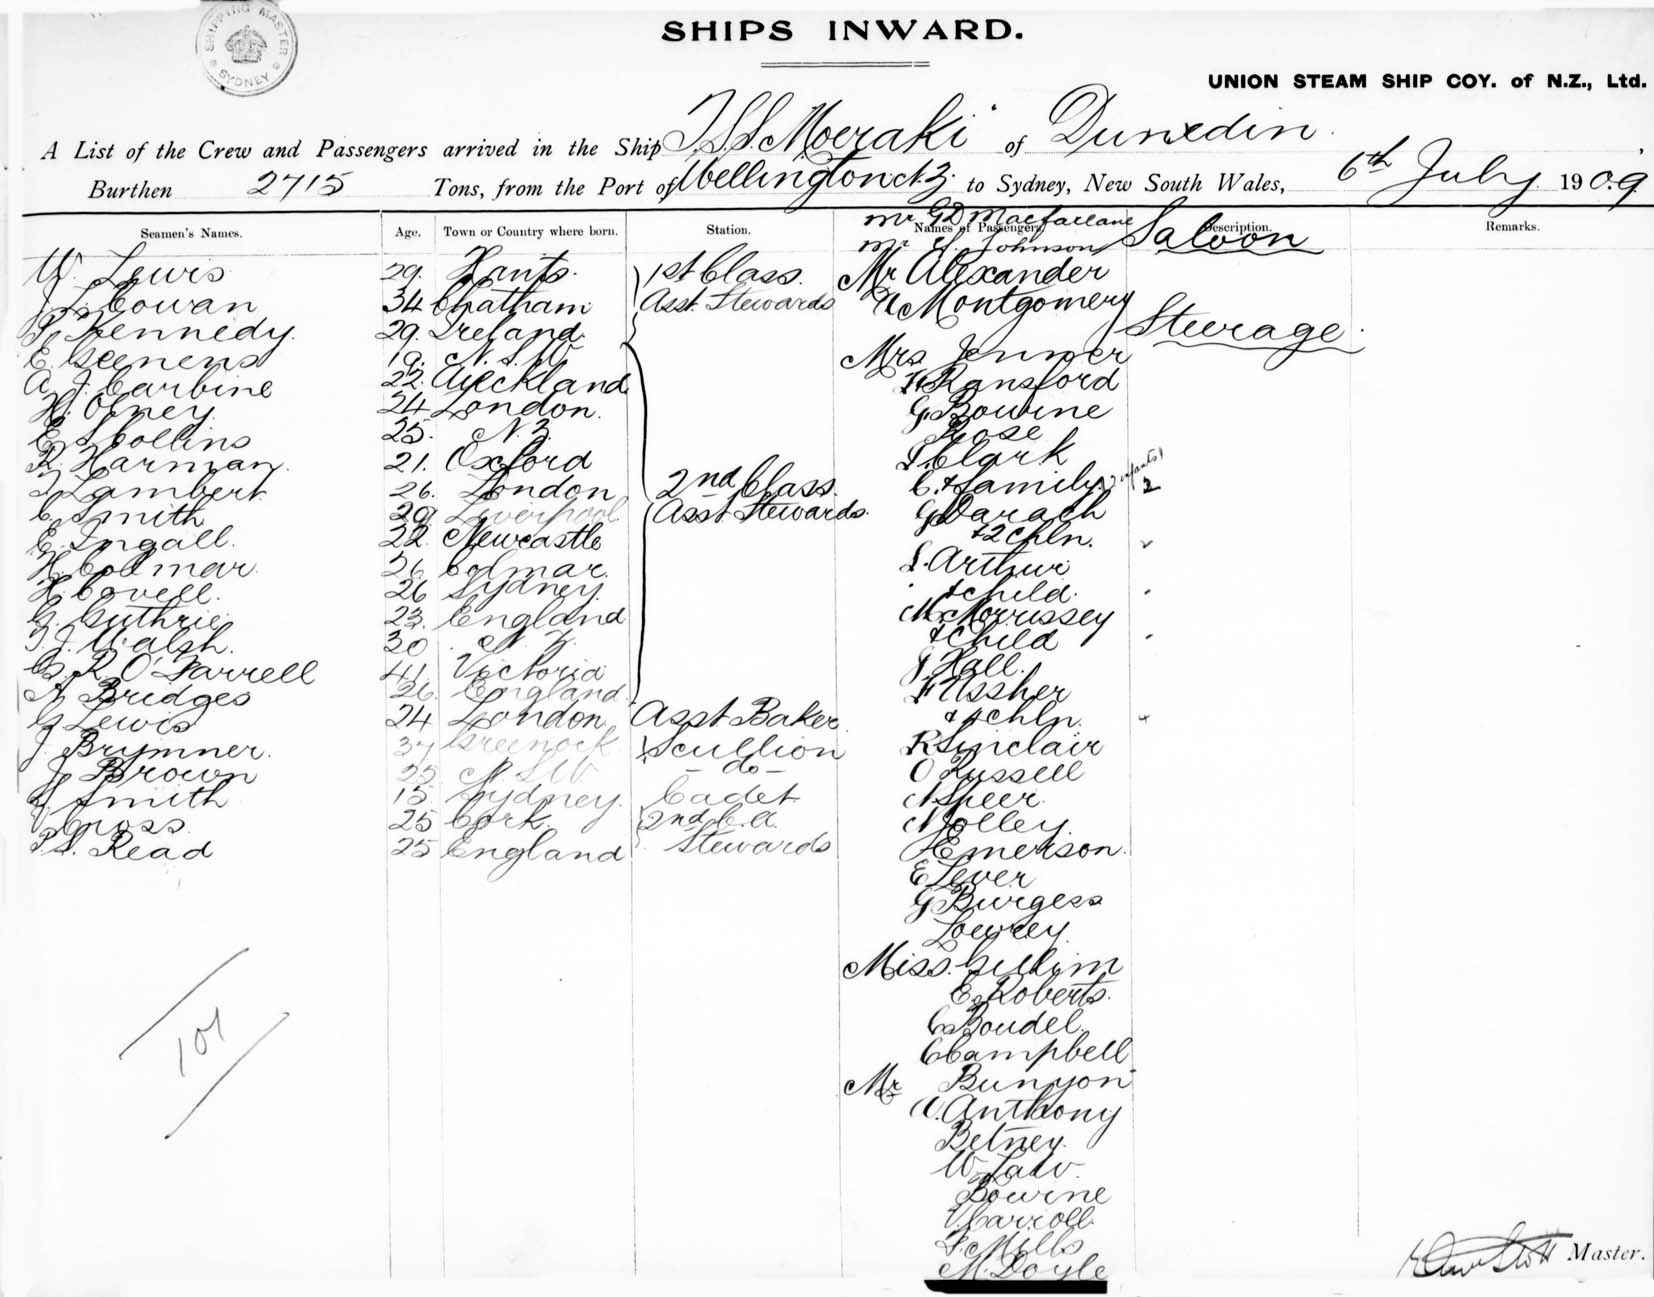 SHIPPING MASTER SYDNEY
SHIPS INWARD.
UNION STEAM SHIP COY. of N.Z., Ltd.
A List of the Crew and Passengers arrived in the Ship T.S.S. Moeraki of Dunedin
Burthen 2715 Tons, from the Port of Wellington N.Z. to Sydney, New South Wales, 6th July 1909
Seamen's Names. Age. Town or Country where born. Station. Names of Passengers Description. Remarks.
Mr. G D Macfarlane
Mr Johnson Saloon
W. Lewis 29. Hants. 1st Class. Mr Alexander
J. L. Cowan 34 Chatham Asst Stewards Montgomery
Kennedy. 29. Ireland. Steerage
E. 19. N.S.W. Mrs Jenner
A. J. Carbine 22. Auckland Ransford
H. Olney. 24 London. G Bourne
E. Collins 25. N.Z. Rose
R Harman. 21. Oxford Clark
Lambert 26. London 2nd Class. C. & family. 2 infants 2
C. Smith 29 Liverpool Asst Stewards. G Darach
E. Ingall. 22. Newcastle +2 chln.
H. Colmar. 26 Colmar. Arthur
H. Covell. 26 Sydney. & child.
G. Guthrie 23. England M. Morrissey
J. Walsh. 30 N.Z. & Child
R. O'Farrell 41. Victoria J Hall.
A Bridges 26. England. F Ussher
G Lewis 24 London Asst Baker & 4 chln.
J. Brymner. 37 Greenock Scullion R Sinclair
J. Brown 25 N.S.W. - do - O Russell
Smith 15 Sydney. Cadet N Speer.
Cross. 25 Cork. 2nd C. N Jolley.
Read 25 England Stewards Emerson.
E Lever
G Burgess
Lowrey
Miss
E. Roberts.
C Boudel.
C Campbell
Mr Bunyon
Anthony
Betney.
W. Law.
Bourne
Carroll
F. Mills
M. Doyle
101
Master.